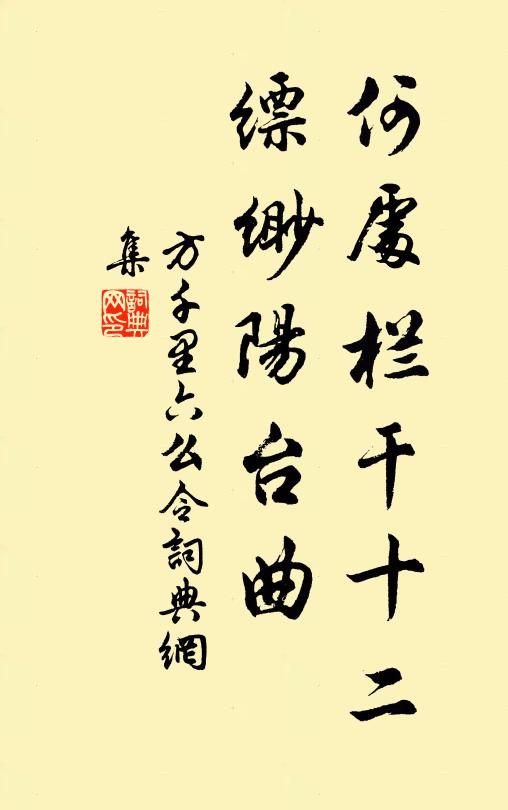 何處栏干十二
缥缈陽台曲
方千里六么令詞典網
集
詞典
网印